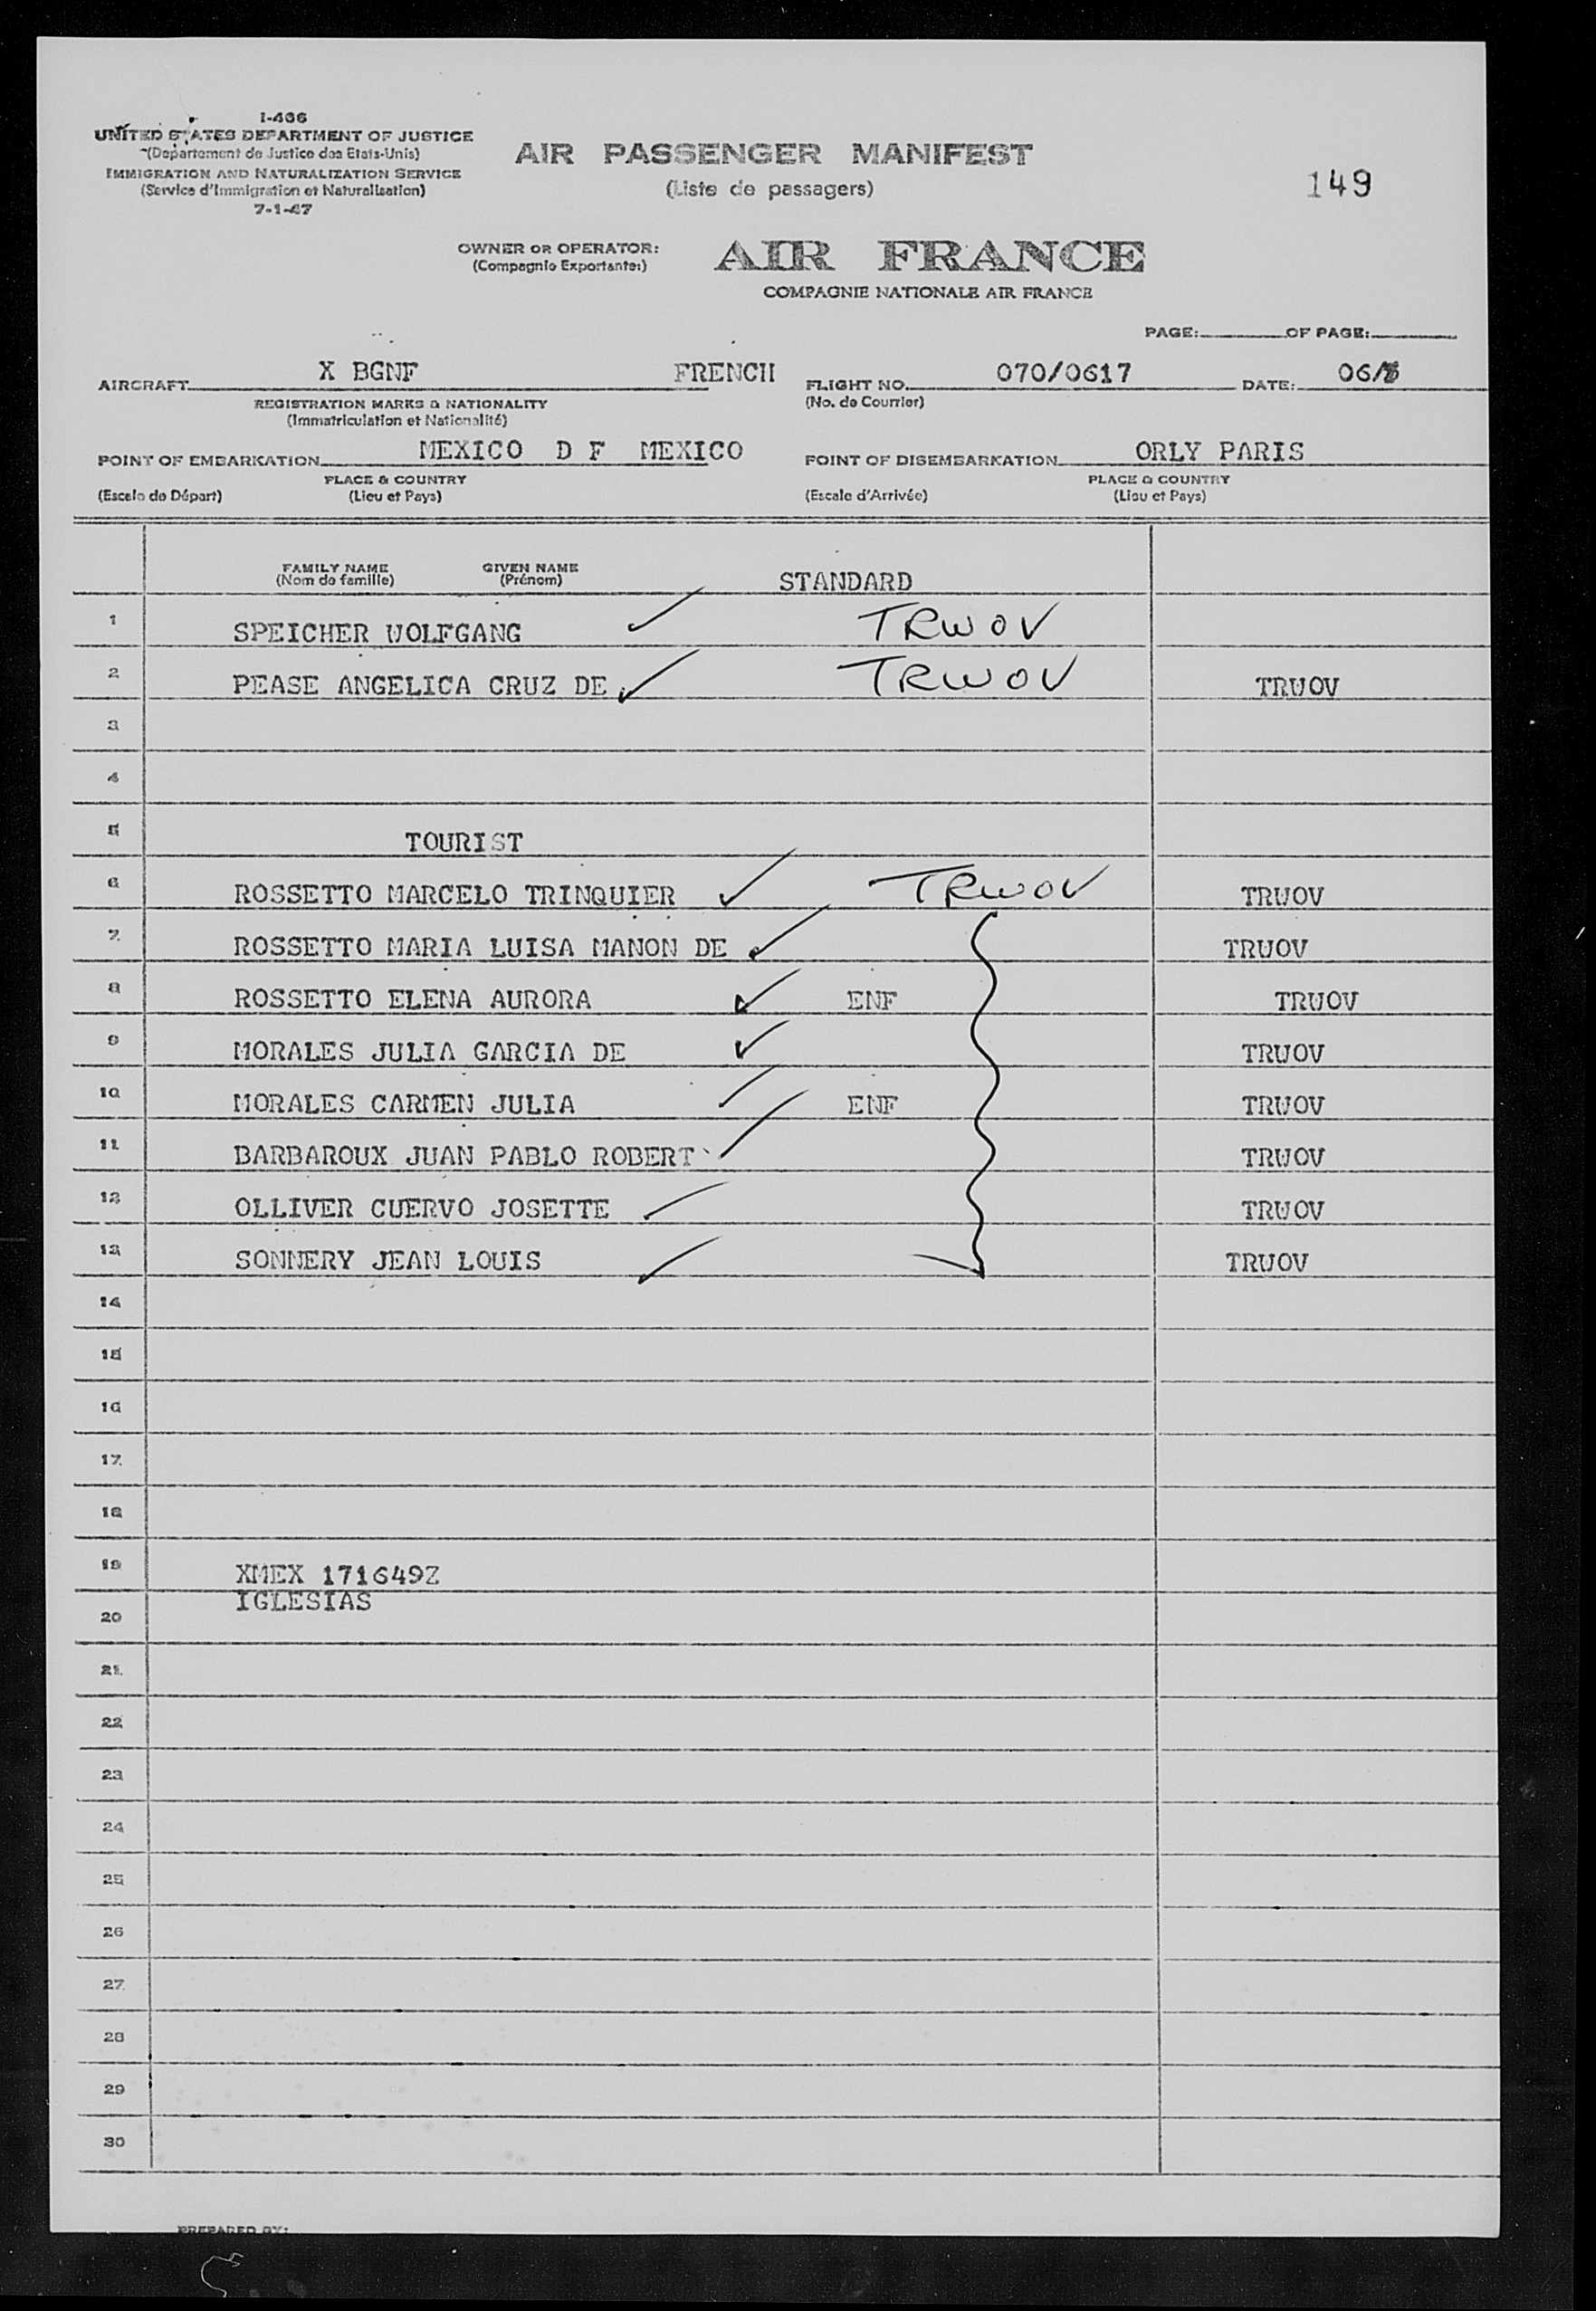 I-466
UNITED STATES DEPARTMENT OF JUSTICE
(Departement de Justice des Etats-Unis)
IMMIGRATION AND NATURALIZATION SERVICE
(Service d'Immigration et Naturalisation)
7-1-47
AIR PASSENGER MANIFEST
(Liste de passagers)
149
OWNER OR OPERATOR: AIR FRANCE
(Compagnie Exportante:)
COMPAGNIE NATIONALE AIR FRANCE
PAGE: OF PAGE:
AIRCRAFT X BGNF FRENCH FLIGHT NO. 070/0617 DATE: 06/
REGISTRATION MARKS & NATIONALITY (No. de Courrier)
(Immatriculation et Nationalité)
POINT OF EMBARKATION MEXICO D F MEXICO POINT OF DISEMBARKATION ORLY PARIS
PLACE & COUNTRY PLACE & COUNTRY
(Escale de Départ) (Lieu et Pays) (Escale d'Arrivée) (Lieu et Pays)
FAMILY NAME GIVEN NAME
(Nom de famille) (Prénom) STANDARD
1 SPEICHER WOLFGANG TRWOV
2 PEASE ANGELICA CRUZ DE TRWOV TRWOV
3
4
5 TOURIST
6 ROSSETTO MARCELO TRINQUIER TRWOV TRWOV
7 ROSSETTO MARIA LUISA MANON DE TRWOV
8 ROSSETTO ELENA AURORA ENF TRWOV
9 MORALES JULIA GARCIA DE TRWOV
10 MORALES CARMEN JULIA ENF TRWOV
11 BARBAROUX JUAN PABLO ROBERT TRWOV
12 OLLIVER CUERVO JOSETTE TRWOV
13 SONNERY JEAN LOUIS TRWOV
14
15
16
17
18
19 XMEX 171649Z
20 IGLESIAS
21
22
23
24
25
26
27
28
29
30
PREPARED BY: